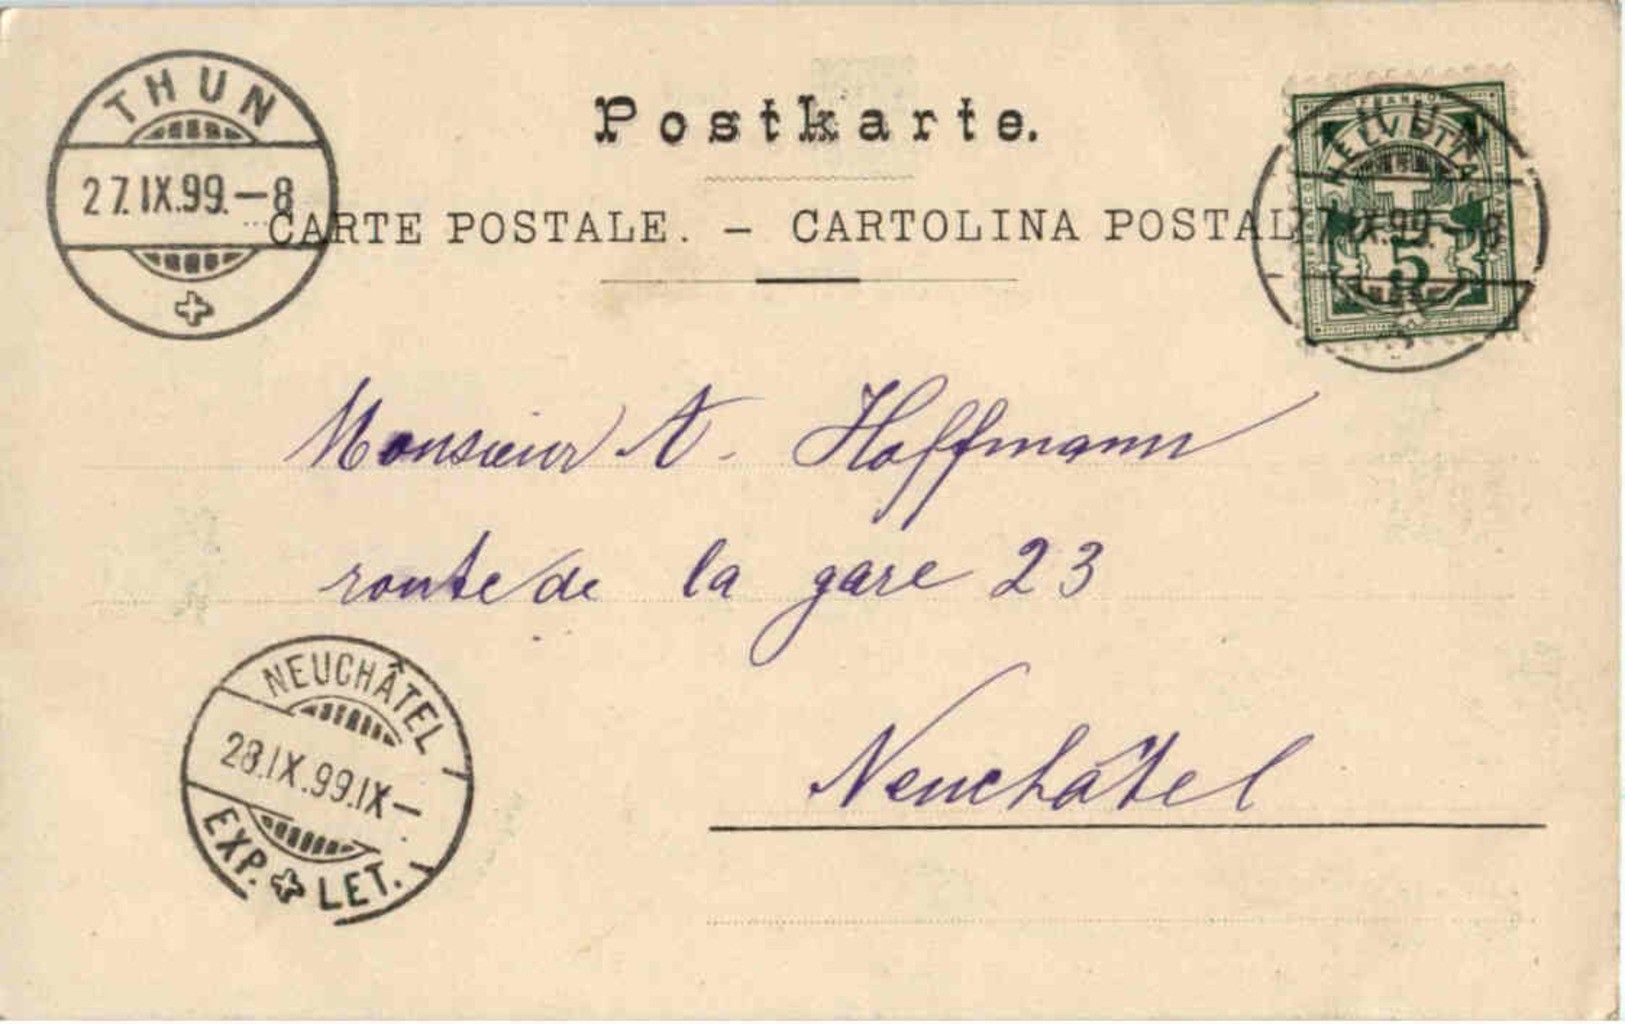 THUN
27.IX.99.–8
Postkarte.
CARTE POSTALE. – CARTOLINA POSTAL
FRANCO
HELVETIA
FRANCO
7.IX.99.–8
5
Monsieur A. Hoffmann
route de la gare 23
Neuchâtel
NEUCHÂTEL
28.IX.99.IX–
EXP. LET.